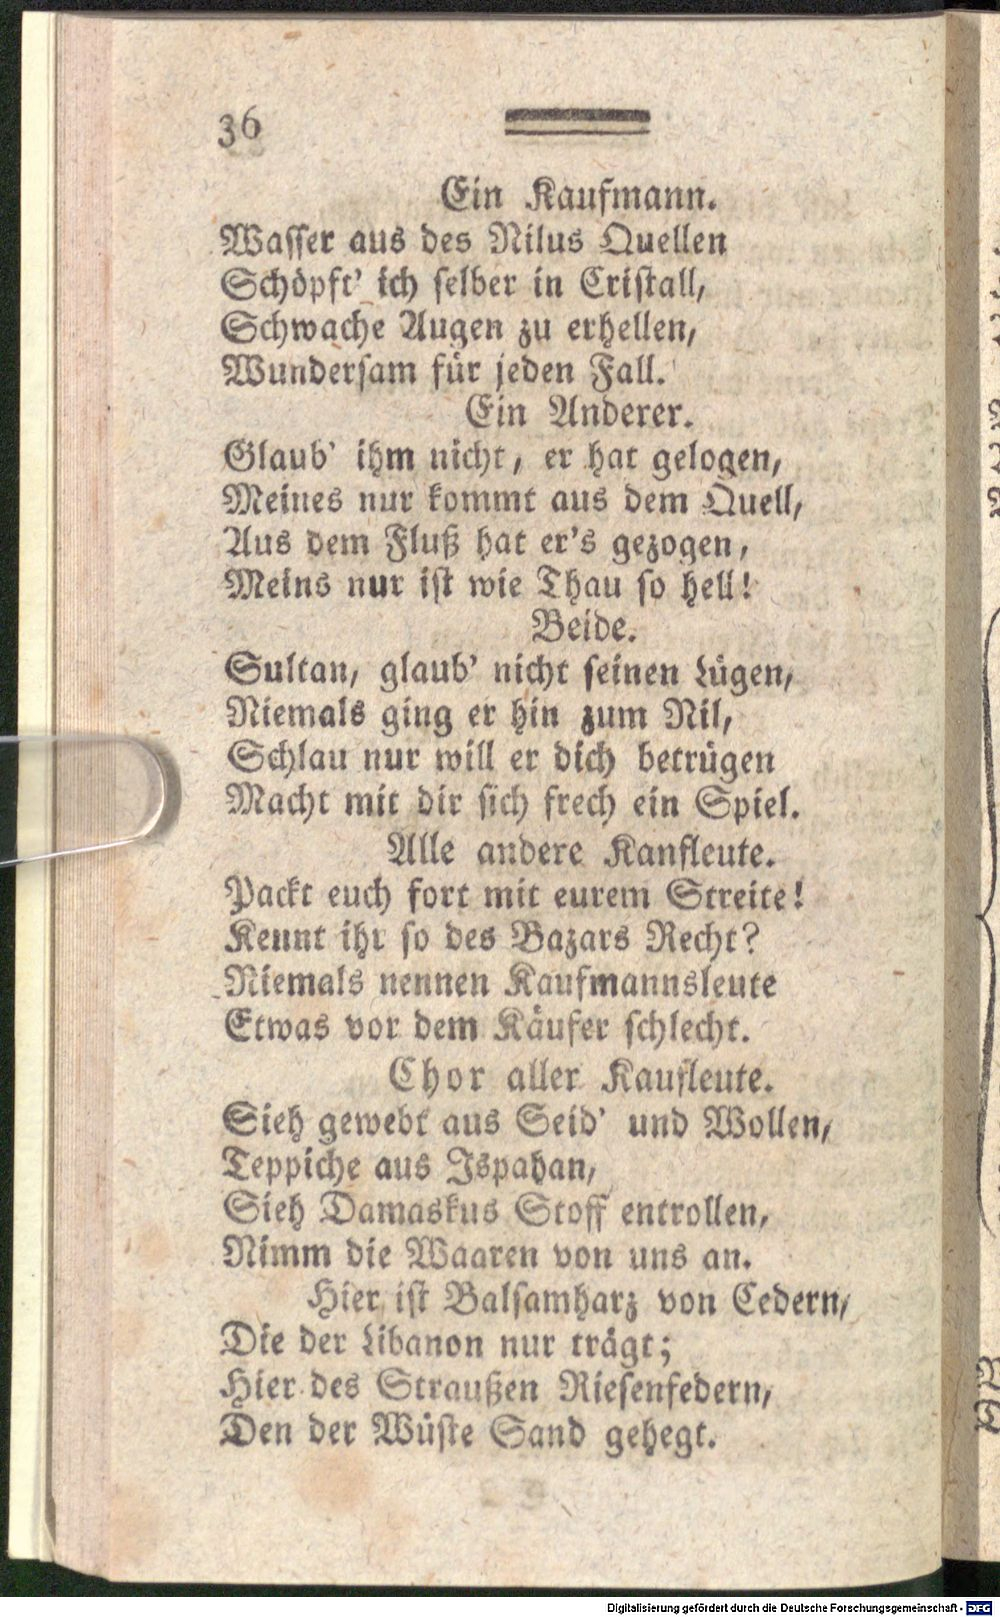 36
Ein Kaufmann.
Wasser aus des Nilus Quellen
Schöpft' ich selber in Cristall,
Schwache Augen zu erhellen,
Wundersam für jeden Fall.
Ein Anderer.
Glaub' ihm nicht, er hat gelogen,
Meines nur kommt aus dem Quell,
Aus dem Fluß hat er's gezogen,
Meins nur ist wie Thau so hell!
Beide.
Sultan, glaub' nicht seinen Lügen,
Niemals ging er hin zum Nil,
Schlau nur will er dich betrügen
Macht mit dir sich frech ein Spiel.
Alle andere Kanfleute.
Packt euch fort mit eurem Streite!
Kennt ihr so des Bazars Recht?
Niemals nennen Kaufmannsleute
Etwas vor dem Käufer schlecht.
Chor aller Kaufleute.
Sieh gewebt aus Seid' und Wollen,
Teppiche aus Ispahan,
Sieh Damaskus Stoff entrollen,
Nimm die Waaren von uns an.
Hier ist Balsamharz von Cedern,
Die der Libanon nur trägt;
Hier des Straußen Riesenfedern,
Den der Wüste Sand gehegt.
Digitalisierung gefördert durch die Deutsche Forschungsgemeinschaft - DFG